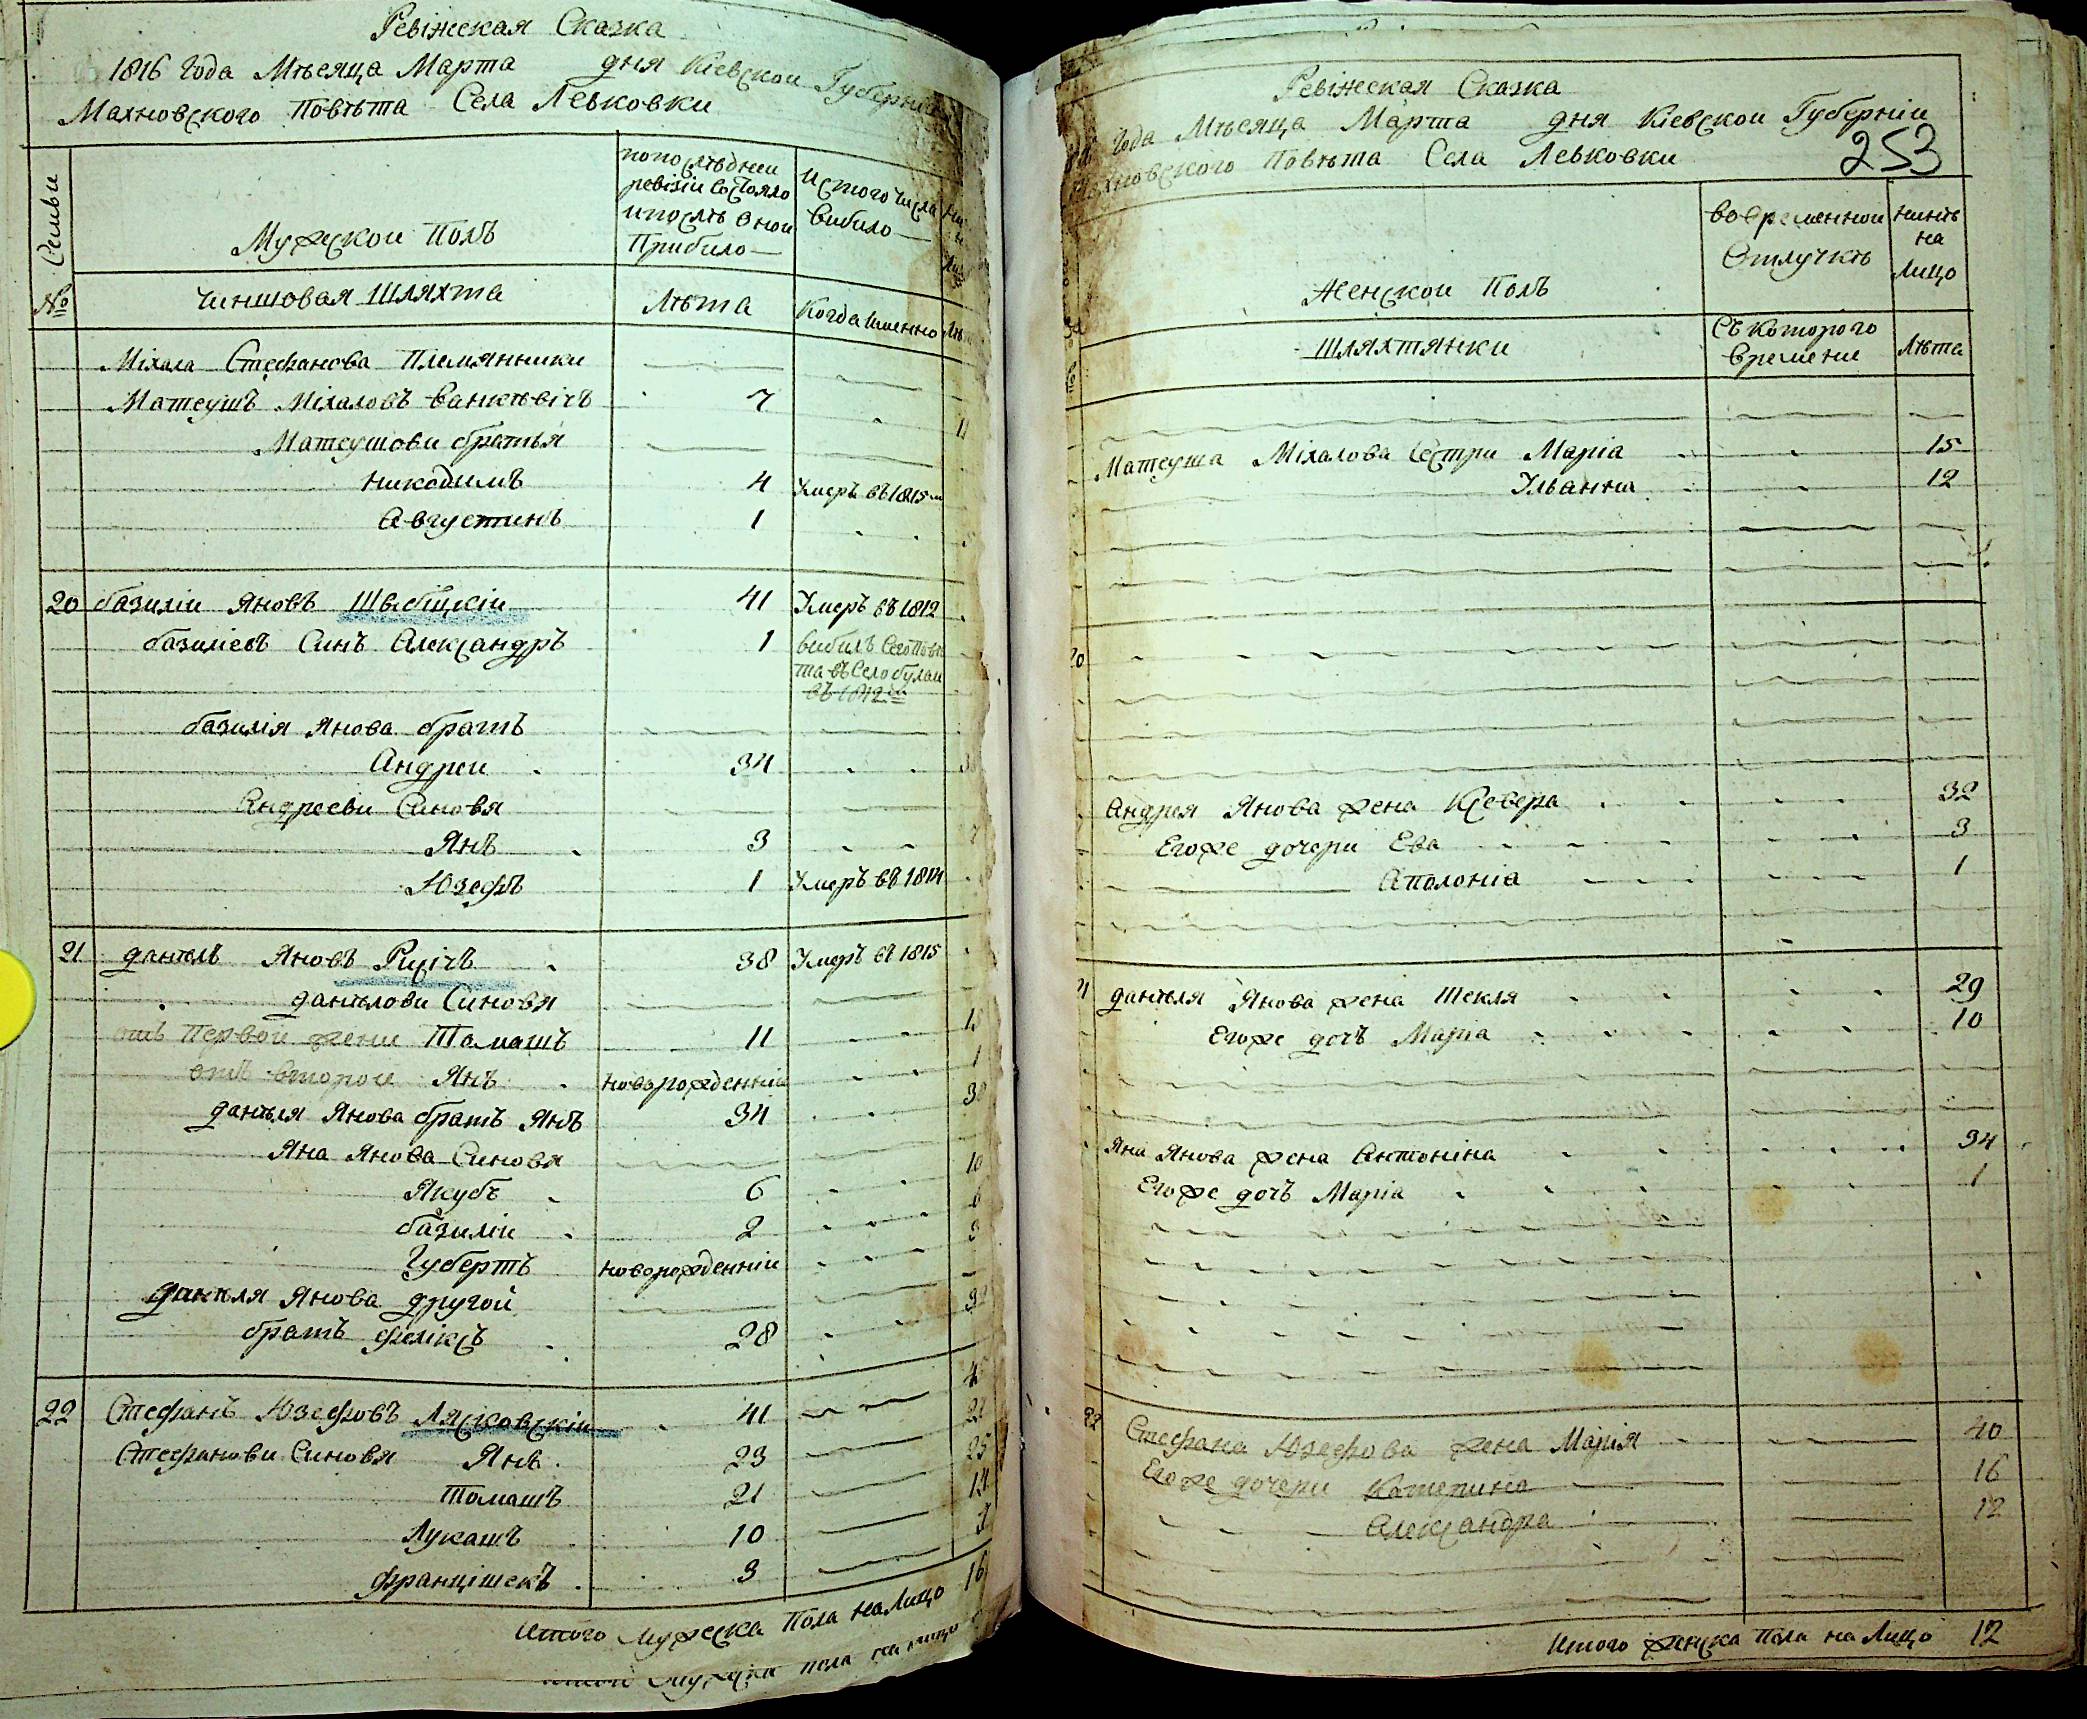 Ревiжская Сказка
1816 Года Мѣсяца Марта дня Кіевской Губерніи
Махновского Повѣта Села Левковки
№ Семьи
Мужской Полъ
попослѣдней
ревизіи состояло
ипослѣ оной
Прибило
истого числа
вибило
чиншовая шляхта
Лѣта
Когда именно
Міхала Стефанова Племянники
Матеушъ Міхаловъ 7 11
Матеушови братья
Никодимъ 4 Умеръ въ 1815м
Августинъ 1
20 базиліи Яновъ 41 Умеръ въ 1812
базиліевъ Синъ Александръ 1 вибилъ Сего Повѣ
та въ Село булаи
въ 1812м
базилія Янова братъ
Андреи 34
Андрееви Синовя
Янъ 3
Юзефъ 1 Умеръ въ 1814
21 данѣлъ Яновъ 38 Умеръ въ 1815
данѣлови Синовя
отъ Первой жени Томашъ 11
отъ второй Янъ новорожденніи 1
данѣля Янова братъ Янъ 34 38
Яна Янова Синовя
Якубъ 6 10
базиліи 2 6
Губертъ новорожденніи 3
данѣля Янова другой
братъ феліксъ 28 32
22 Стефанъ Юзефовъ Лясковскіи 41 45
Стефанови Синовя Янъ 23
Томашъ 21 25
Лукашъ 10 14
францішекъ 3
Итого Мужеска Пола на Лицо 16
Мужеска пола на лицо
Ревiжская Сказка
Года Мѣсяца Марта дня Кіевской Губерніи
Махновского Повѣта Села Левковки
253
Женской Полъ
вовременной
Отлучкѣ
нинѣ
на
Лицо
шляхтянки
Съ которого
времени
Лѣта
Матеуша Міхалова Сестри Маріа 15
Ульянна 12
20
Андрея Янова жена Ксевера 32
Егоже дочери Ева 3
Аполоніа 1
21 данѣля Янова жена Текля 29
Егоже дочъ Маріа 10
Яна Янова жена Антоніна 34
Егоже дочъ Маріа 1
22 Стефана Юзефова жена Марія 40
Егоже дочери Катерина 16
Александра 12
Итого женска Пола на Лицо 12